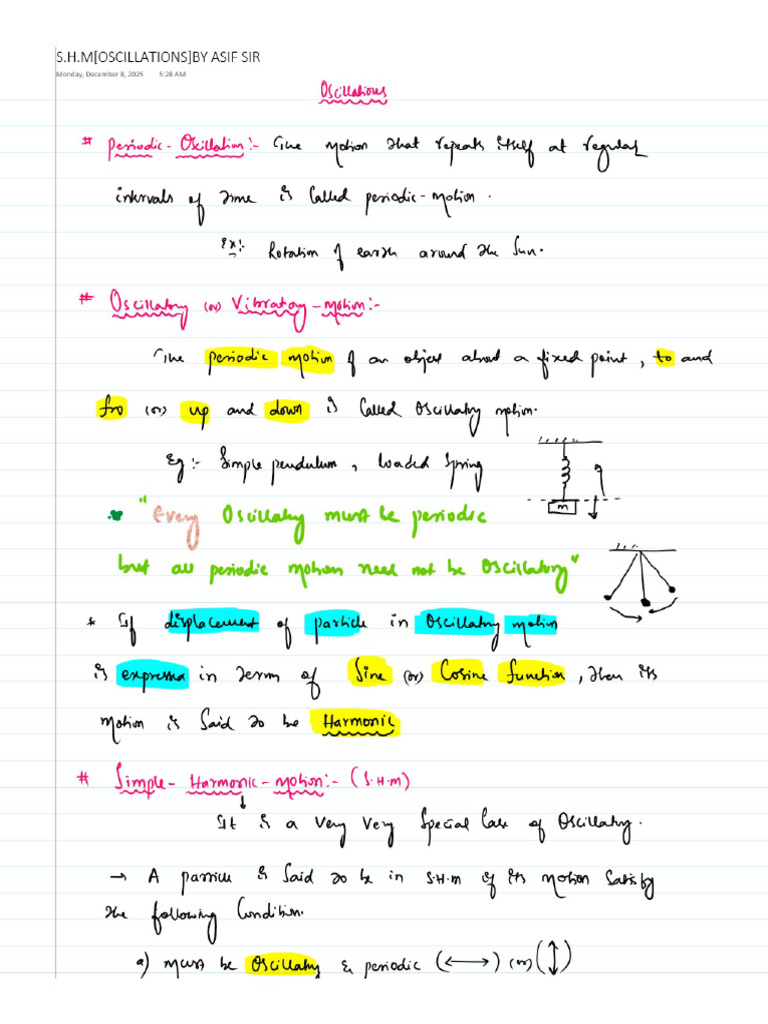 S.H.M[OSCILLATIONS]BY ASIF SIR
Monday, December 8, 2025 5:28 AM
Oscillations
# Periodic-Oscillation:- The motion that repeats itself at regular
intervals of time is Called periodic-motion.
Ex:- Rotation of earth around the Sun.
# Oscillatory (or) Vibratory-motion:-
The periodic motion of an object about a fixed point, to and
fro (or) up and down is Called Oscillatory motion.
Eg:- Simple pendulum, loaded Spring
m
"Every Oscillatory must be periodic
but all periodic motion need not be Oscillatory"
* If displacement of particle in Oscillatory motion
is express in term of Sine (or) Cosine function, then its
motion is Said to be Harmonic
# Simple-Harmonic-motion:- (S.H.M)
↓
It is a very very Special Case of Oscillatory.
→ A particle is Said to be in S.H.M if its motion Satisfy
the following Condition.
a) must be Oscillatory & periodic (↔) (or) (↕)